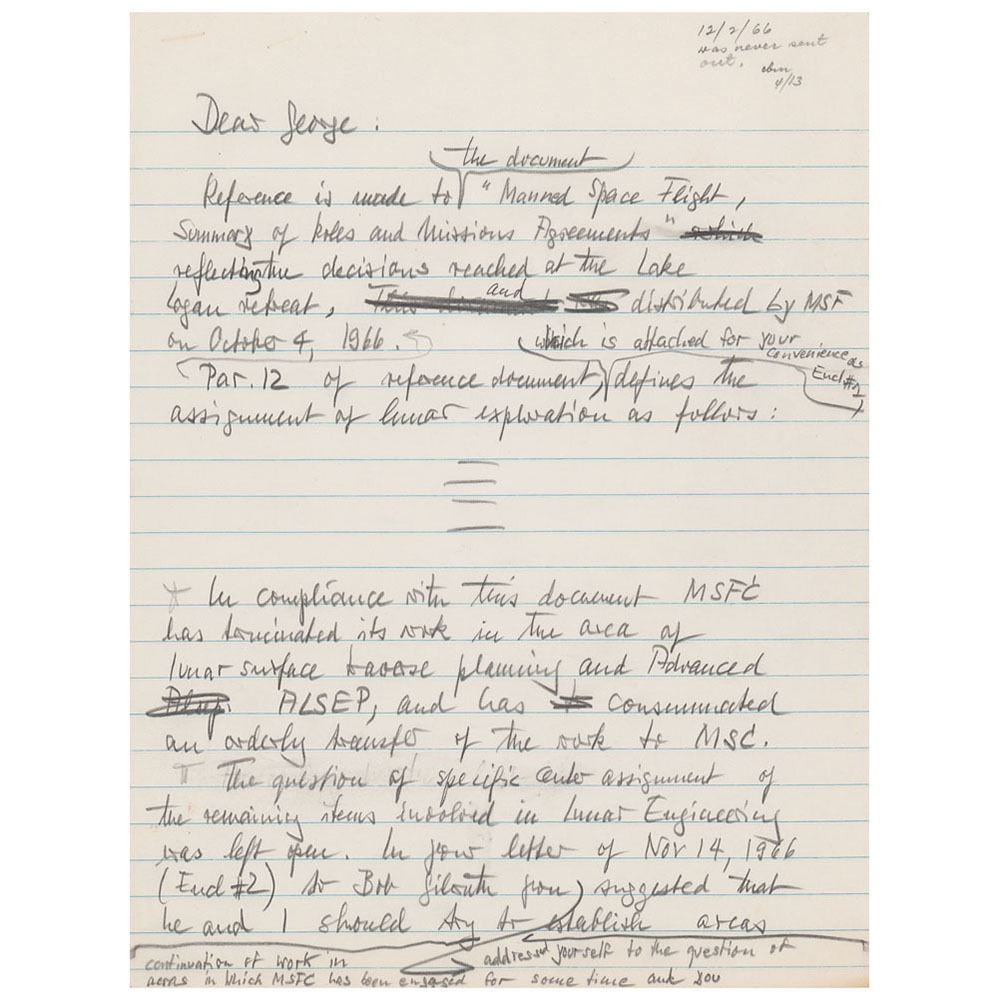 12/2/66
was never sent
out.
4/13
Dear George:
the document
Reference is made to "Manned Space Flight,
Summary of Roles and Missions Agreements" which
reflecting the decisions reached at the Lake
Logan retreat, and distributed by MSF
on October 4, 1966.
which is attached for your
convenience as
Encl #1
Par. 12 of reference document, defines the
assignment of lunar exploration as follows:
In compliance with this document MSFC
has terminated its work in the area of
lunar surface traverse planning and Advanced
Alsep. ALSEP, and has consummated
an orderly transfer of the work to MSC.
The question of specific Center assignment of
the remaining items involved in Lunar Engineering
was left open. In your letter of Nov 14, 1966
(Encl #2) to Bob Gilruth you suggested that
he and I should try to establish areas
addressed yourself to the question of
continuation of work in
areas in which MSFC has been engaged for some time and you